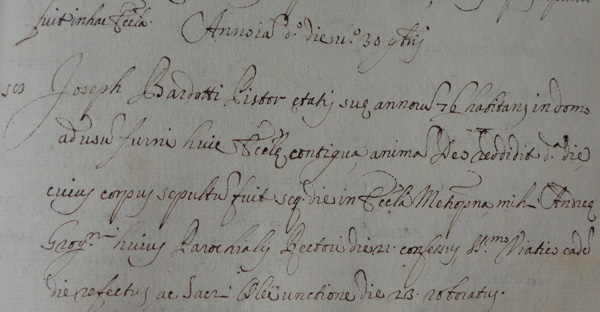 fuit in hac Eccla.
Anno ia d.o die v.o 30 9bris
Joseph Bardotti Pistor etatis sue annoru 76 habitans in domo
ad usu furni huic Eccle contigua, anima Deo reddidit d.a die,
cuius corpus sepultu fuit seq. die in Eccla Mehopna, mihi Anneq
huius Parochialis Rectori die 21 confessus SS.mo Viatico eade
die refectus, ac Sacri Olei unctione die 23 roboratus.